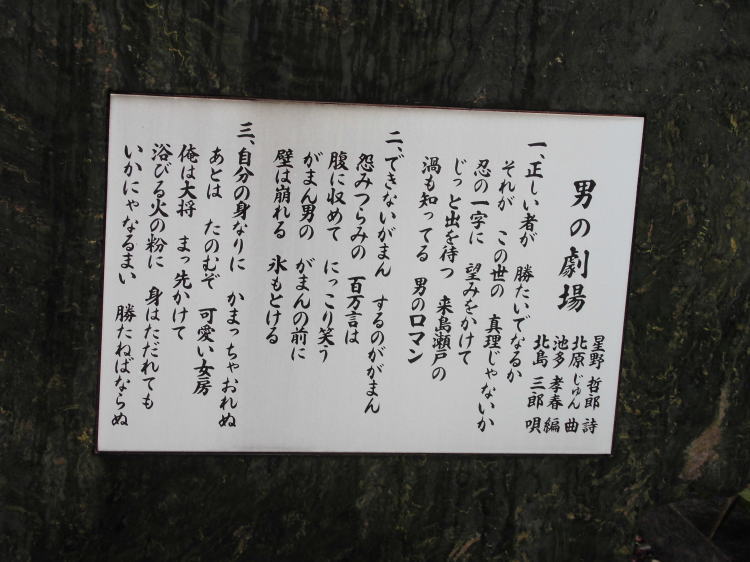 男の劇場
星野 哲郎 詩
北原 じゅん 曲
池多 孝春 編
北島 三郎 唄
一、正しい者が 勝たいでなるか
それが この世の 真理じゃないか
忍の一字に 望みをかけて
じっと出を待つ 来島瀬戸の
渦も知ってる 男のロマン
二、できないがまん するのががまん
怨みつらみの 百万言は
腹に収めて にっこり笑う
がまん男の がまんの前に
壁は崩れる 氷もとける
三、自分の身なりに かまっちゃおれぬ
あとは たのむぞ 可愛い女房
俺は大将 まっ先かけて
浴びる火の粉に 身はただれても
いかにゃなるまい 勝たねばならぬ